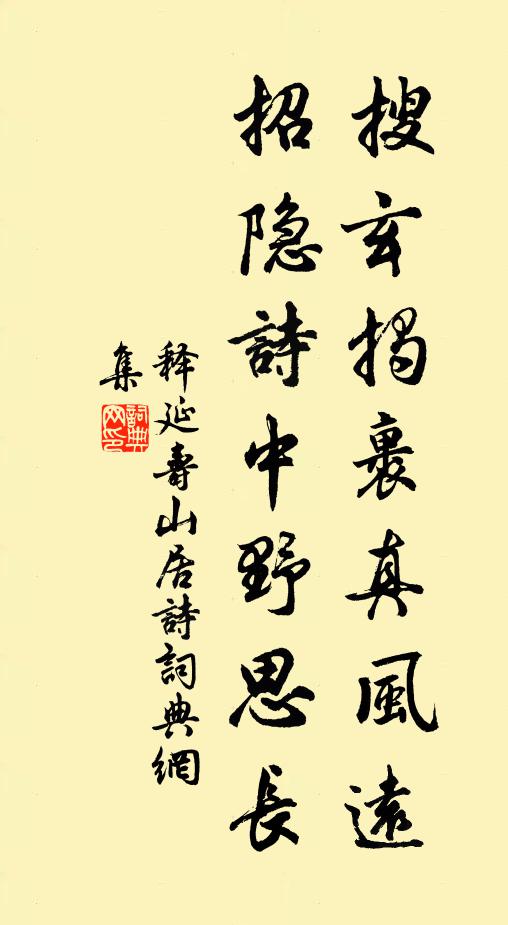 搜玄揭裹真風遠
招隐詩中野思長
释延壽山居詩詞典網
集
詞典网印